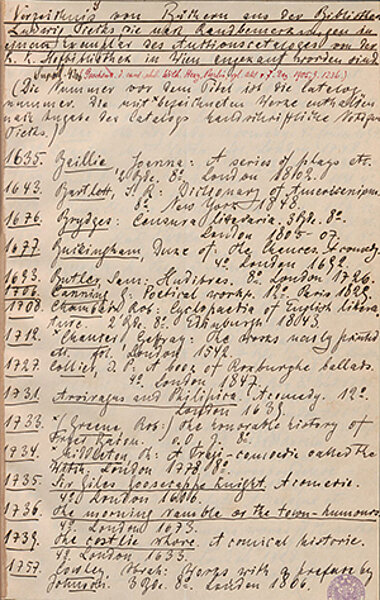 Verzeichnis von Büchern aus der Bibliothek
Ludwig Tiecks die nach Randbemerkungen in
einem Exemplar des Auktionscataloges von der
k. k. Hofbibliothek in Wien angekauft worden sind
(Die Nummer vor dem Titel ist die Catalog
nummer. Die mit * bezeichneten Werke enthalten
nach Angabe des Catalogs handschriftliche Notizen
Tiecks.)
1635. Baillie, Joanna: A series of plays etc.
2 Bde. 8o. London 1802.
1643. Bartlett, J. R.: Dictionary of Americanisms.
8o. New York 1848.
1676. Brydges: Censura literaria. 3 Bde. 8o.
London 1805-07.
1677. Buckingham, Duke of: the Chances. A comedy.
4o. London 1692.
1693. Butler, Sam: Hudibras. 8o. London 1726.
1706. Canning, G: Poetical works. 12o. Paris 1829.
1708. Chambers, Rob: Cyclopaedia of English litera
ture. 2 Bde. 8o. Edinburgh 1843.
1712. *Chaucer, Geffray: the works newly printed
etc. fol. London 1542.
1727. Collier, J. P: A book of Roxburghe ballads.
4o. London 1847.
1731. Arviragus and Philicia. A comedy. 12o.
London 1639.
1733. *(Greene, Rob:) the honorable history of
Fryer Bacon. o.O. J. 8o.
1734. *Middleton, Th: A Tragi-comoedie called the
Witch. London 1778 8o.
1735. Sir Giles Goosecappe Knight. A comedie.
4o. London 1606.
1736. the morning ramble or the town-humours.
4o. London 1673.
1739. the costlie whore. A comical historie.
4o. London 1633.
1757. Cowley, Abrah: Works with a preface by
Johnson. 3 Bde. 8o. London 1806.